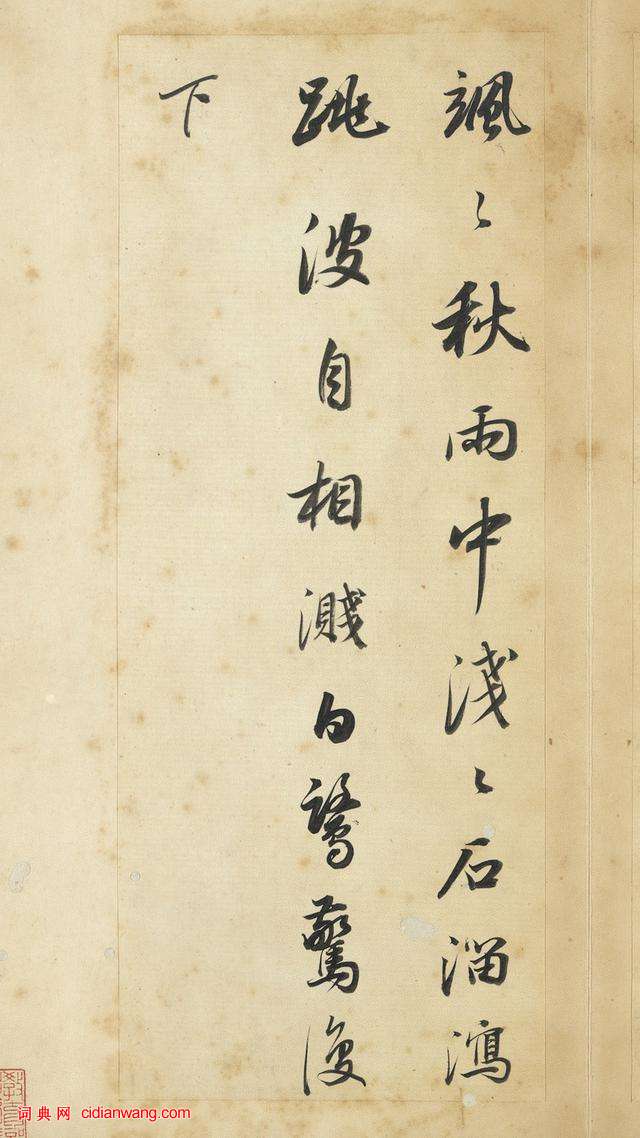 颯〻秋雨中淺〻石溜瀉
跳波自相濺白鷺驚復
下
词典网 cidianwang.com